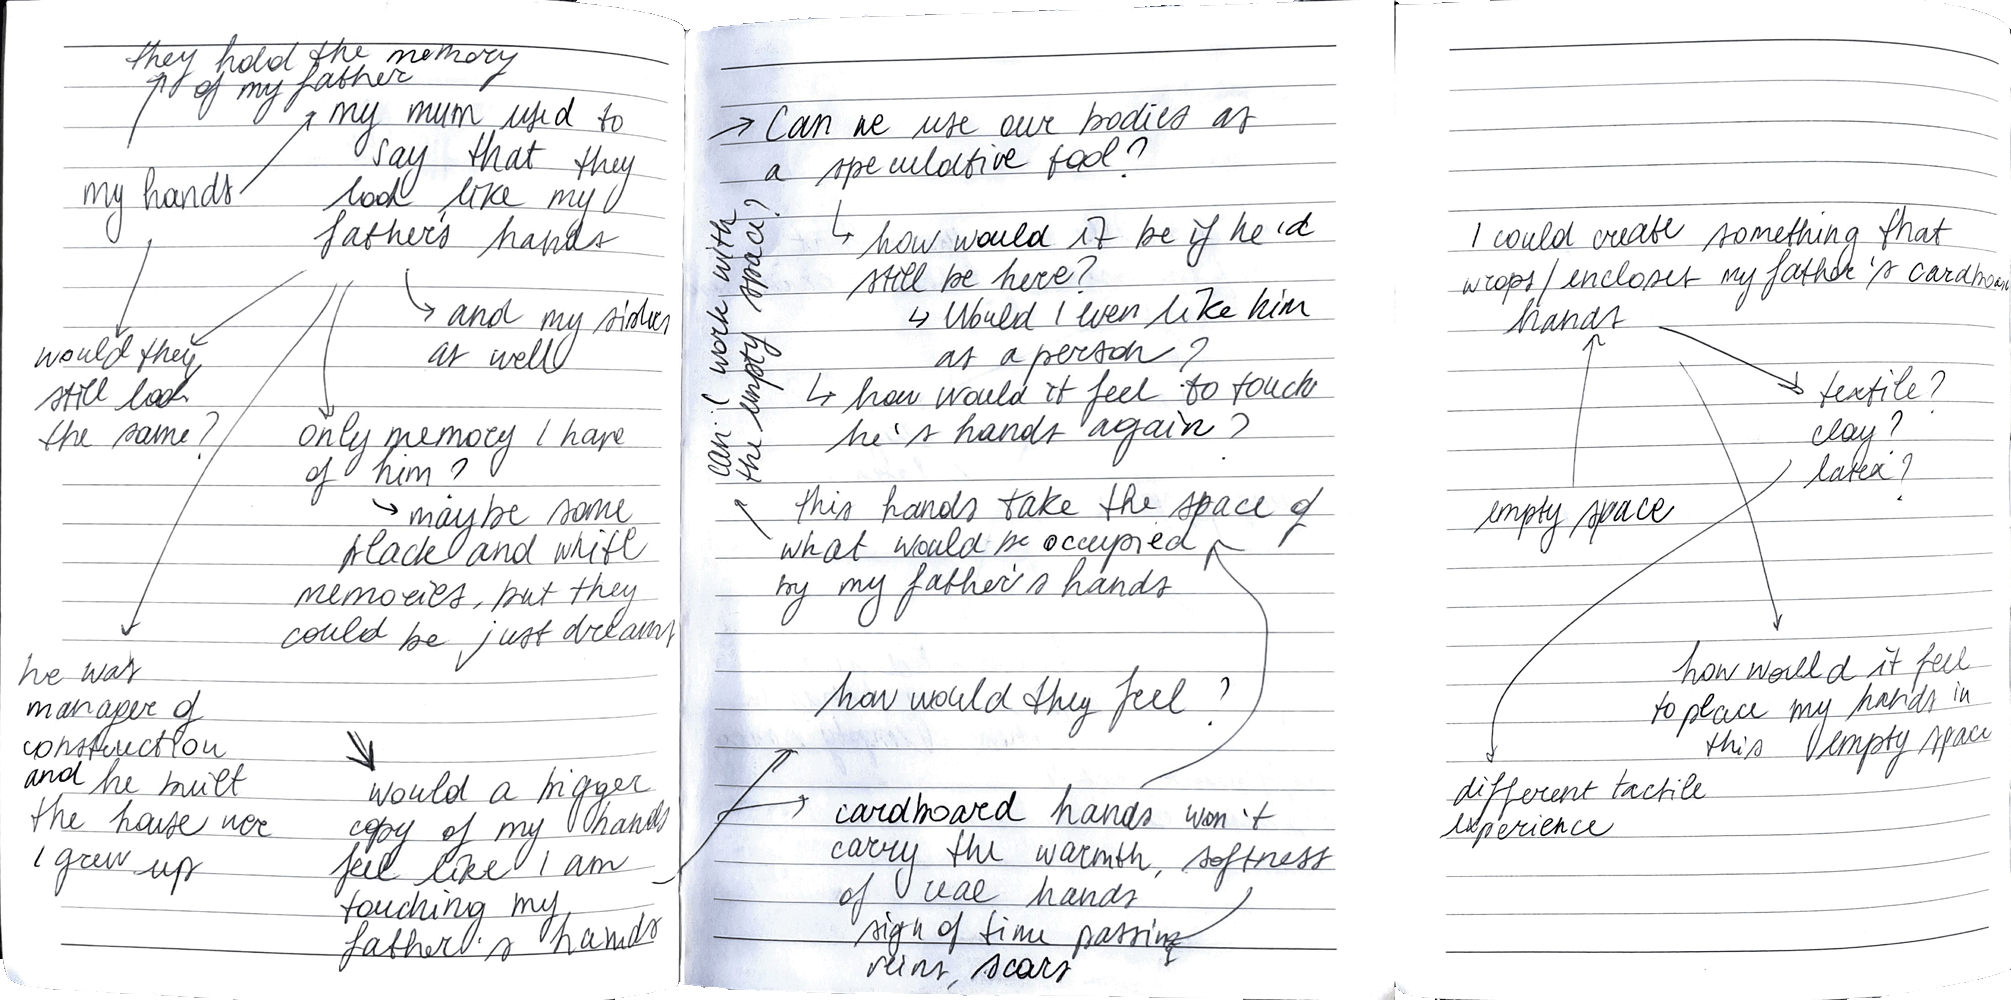 they hold the memory
of my father
my mum used to
say that they
look like my
father's hands
my hands
and my sisters
as well
would they
still look
the same?
only memory I have
of him?
maybe some
black and white
memories, but they
could be just dreams
he was
manager of
construction
and he built
the house wer
I grew up
would a bigger
copy of my hands
feel like I am
touching my
father's hands
Can we use our bodies as
a speculative tool?
can I work with
the empty space?
how would it be if he'd
still be here?
Would I even like him
as a person?
how would it feel to touch
he's hands again?
this hands take the space of
what would be occupied
by my father's hands
how would they feel?
cardboard hands won't
carry the warmth, softness
of real hands
sign of time passing
veins, scars
I could create something that
wraps/encloses my father's cardboard
hands
textile?
clay?
latex?
empty space
how would it feel
to place my hands in
this empty space
different tactile
experience